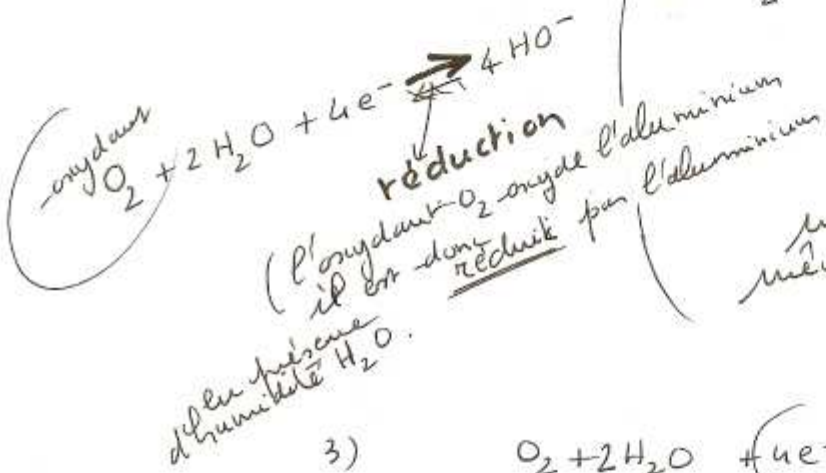 oxydant
O₂ + 2 H₂O + 4e⁻ → 4 HO⁻
réduction
(l'oxydant O₂ oxyde l'aluminium
il est donc réduit par l'aluminium
en présence
d'humidité H₂O.
3) O₂ + 2 H₂O + 4e⁻